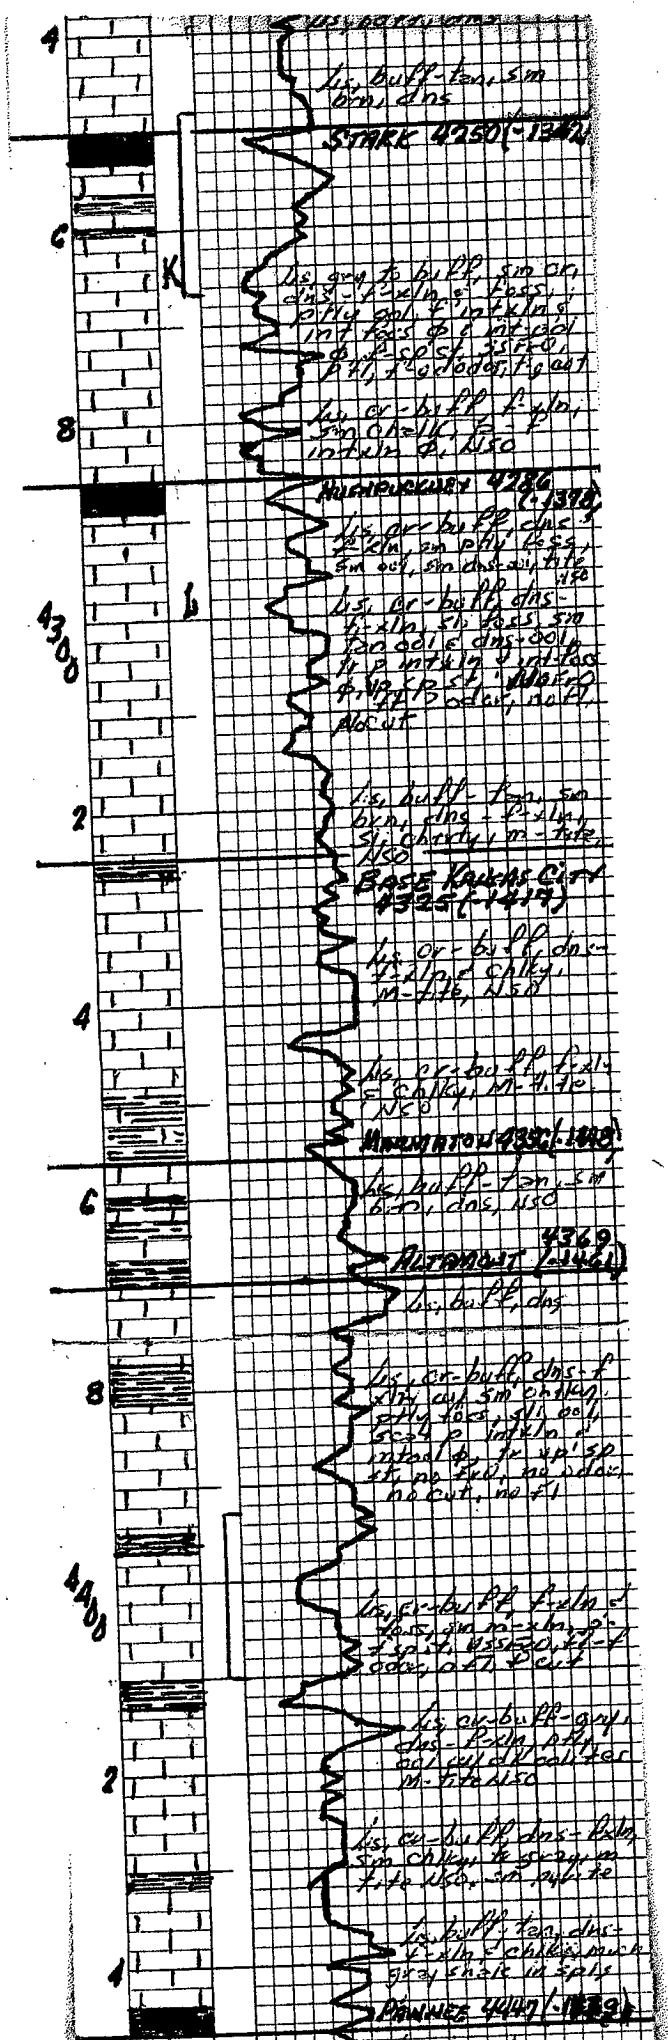 4
Ls, buff, dns
Ls, buff-tan, sm
brn, dns
STARK 4250 (-1342)
6
K
Ls, gry to buff, sm cr,
dns - f-xln & foss,
ptly ool, f intxln &
int foss ϕ & int-ool
ϕ, f-sp st, SSFrO,
f-g odor, f-g cut
8
Ls, cr-buff, f-xln,
sm chalk, p-f
intxln ϕ, NSO
HUSHPUCKNEY 4286
(-1378)
Ls, cr-buff, dns &
f-xln, sm ptly foss,
sm ool, sm dns-ool, tite
NSO
L
4300
Ls, cr-buff, dns-
f-xln, sli foss, sm
tan ool & dns-ool,
tr p intxln & int-foss
ϕ, st, odor, no fl,
No cut
2
Ls, buff-tan, sm
brn, dns - f-xln,
sli cherty, m-tite,
NSO
BASE KANSAS CITY
4325 (-1417)
Ls, cr-buff, dns-
f-xln, & chlky,
M-tite, NSO
4
Ls, cr-buff f-xln
& chlky, M-tite
NSO
MARMATON 4356 (-1448)
6
Ls, buff-tan, sm
brn, dns, NSO
4369
ALTAMONT (-1461)
Ls, buff, dns
8
Ls, cr-buff, dns-f
xln, w/ sm
ptly foss, sli ool,
scat p intxln &
intool ϕ, tr sp
st, no frO, no odor,
no cut, no fl
4400
Ls, cr-buff f-xln &
foss, sm m-xln, p-
f sp st, SSFrO, f
odor, p fl, f cut
Ls, cr-buff-gry,
dns - f-xln, ptly
ool w/ dk oolites
M-tite NSO
2
Ls, cr-buff, dns-fxln,
sm chlky, & gray, m
tite NSO, sm pyrite
Ls, buff-tan, dns-
f-xln & chlky, much
gray shale in spls
4
PAWNEE 4447